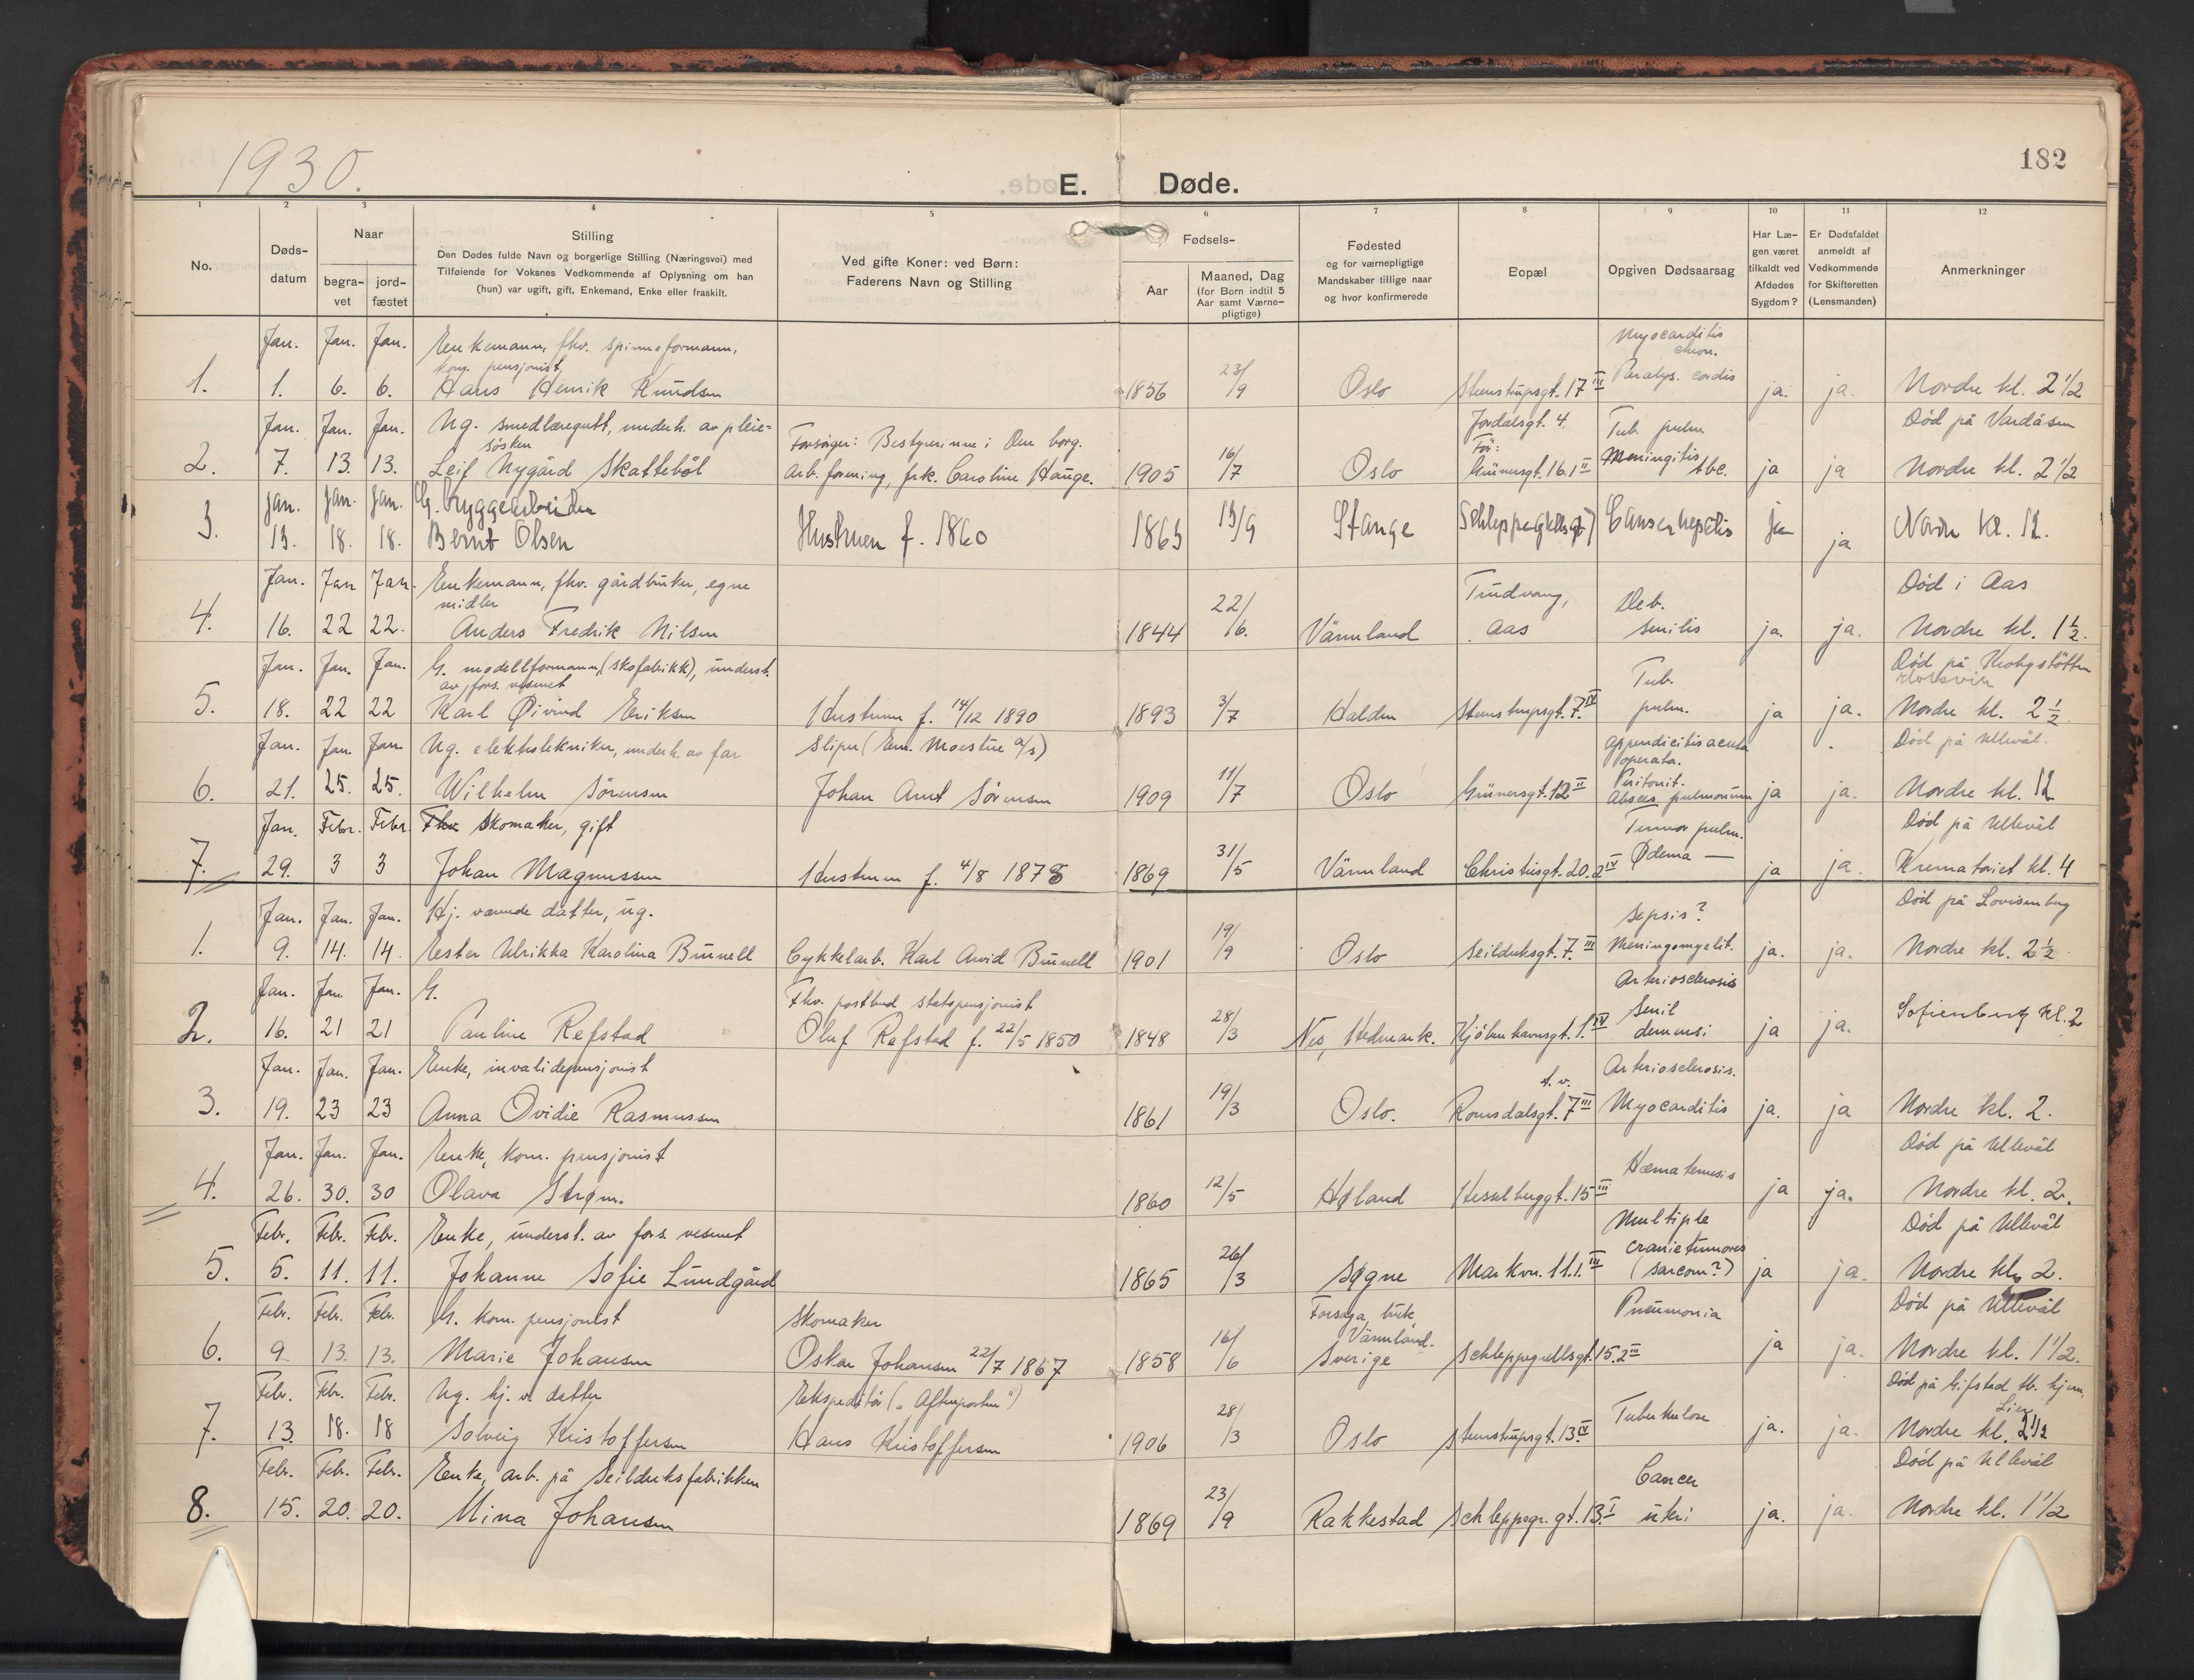 1930.
E. Døde.
182
1 2 3 4 5 6 7 8 9 10 11 12
No.
Døds-
datum
Naar
begra-
vet
jord-
fæstet
Stilling
Den Dødes fulde Navn og borgerlige Stilling (Næringsvei) med
Tilføiende for Voksnes Vedkommende af Oplysning om han
(hun) var ugift, gift, Enkemand, Enke eller fraskilt.
Ved gifte Koner: ved Børn:
Faderens Navn og Stilling
Fødsels-
Aar
Maaned, Dag
(for Børn indtil 5
Aar samt Værne-
pligtige)
Fødested
og for værnepligtige
Mandskaber tillige naar
og hvor konfirmerede
Bopæl
Opgiven Dødsaarsag
Har Læ-
gen været
tilkaldt ved
Afdødes
Sygdom?
Er Dødsfaldet
anmeldt af
Vedkommende
for Skifteretten
(Lensmanden)
Anmerkninger
Jan. Jan. Jan. Enkemann, fhv. spinneformann, Myocarditis
kom. pensjonist, chron.
1. 1. 6. 6. Hans Henrik Knudsen 1856 23/9 Oslo Steenstrupsgt. 17 III Paralys. cordis ja. ja. Nordre kl. 2 1/2
Jan. Jan. Jan. Ug. smedlæregutt, underh. av pleie- Forsörger: Bestyrerinne i Den borg. Jordalsgt. 4. Tub. pulm Död på Vardåsen
søsken För:
2. 7. 13. 13. Leif Nygård Skatteböl arb. forening, frk. Caroline Hauge. 1905 16/7 Oslo Grünersgt. 16.1 II Meningitis tbc. ja ja Nordre kl. 2 1/2
Jan. Jan. Jan. G. bryggearbeider
3. 13. 18. 18. Bernt Olsen Hustruen f. 1860 1863 13/9 Stange Canser hepatis ja ja Nordre kl. 12.
Jan. Jan Jan. Enkemann, fhv. gårdbruker, egne Död i Aas
midler Deb.
4. 16. 22 22. Anders Fredrik Nilsen 1844 22/6. Värmland Aas senilis ja. ja. Nordre kl. 1 1/2.
Jan. Jan. Jan. G. modellformann (skofabrikk), underst. Tub. Död på
av fors. vesenet
5. 18. 22 22 Karl Øivind Eriksen Hustruen f. 14/12 1890 1893 3/7 Halden Steenstrupsgt. 7. IV pulm. ja ja. Nordre kl. 2 1/2
Jan. Jan. Jan. Ug. elektrotekniker, underh. av far Sliper (Em. Moestue a/s) appendicitis acuta Död på Ullevål.
operata.
6. 21. 25. 25. Wilhelm Sörensen Johan Arnt Sörensen 1909 11/7 Oslo Grünersgt. 12 II Peritonit. ja ja. Nordre kl. 12
Absces pulmonum
Jan. Febr. Febr. Fhv. Skomaker, gift Tumor pulm. Död på Ullevål
7. 29. 3 3 Johan Magnussen Hustruen f. 4/8 1878 1869 31/5 Värmland Christiesgt. 20.2 IV Ødema — ja ja. Krematoriet kl. 4
Jan. Jan. Jan. Hj. værende datter, ug. Sepsis? Död på Lovisenberg
1. 9. 14. 14. Ester Ulrikka Karolina Brunell Cykkelarb. Karl Arvid Brunell 1901 19/9 Oslo Seilduksgt. 7. III Meningomyelit. ja. ja. Nordre kl. 2 1/2
Jan. Jan. Jan. G. Fhv. postbud statspensjonist Arteriosclerosis
Senil
2. 16. 21 21 Pauline Refstad Oluf Refstad f. 22/5 1850 1848 28/3 Nes, Hedmark. Kjöbenhavnsgt. 1. IV demensi ja ja. Sofienberg kl. 2
Jan. Jan. Jan. Enke, invalidepensjonist t. v. Arteriosclerosis.
3. 19. 23 23 Anna Ovidie Rasmussen 1861 19/3 Oslo. Romsdalsgt. 7 III Myocarditis ja. ja Nordre kl. 2.
Jan. Jan. Jan. Enke, kom. pensjonist Død på Ullevål
4. 26. 30. 30 Olava Strøm. 1860 12/5 Høland Hesselberggt. 15 III Hæmatemesis ja ja. Nordre kl. 2.
Febr. Febr. Febr. Enke, underst. av fors. vesenet Multiple Död på Ullevål
cranietumores
5. 5. 11. 11. Johanne Sofie Lundgård 1865 26/3 Søgne Markvn. 11.1. III (sarcom?) ja ja. Nordre kl. 2.
Febr. Febr. Febr. G. kom. pensjonist Skomaker Pneumonia Död på Ullevål
Värmland.
6. 9 13. 13. Marie Johansen Oskar Johansen 22/7 1867 1858 16/6 Sverige Schleppegrellsgt. 15.2 III ja ja. Nordre kl. 1 1/2.
Febr. Febr. Febr. Ug. hj. v. datter Ekspeditör („Aftenposten") Död på Gifstad tb. hjem,
Lier
7. 13. 18. 18 Solveig Kristoffersen Hans Kristoffersen 1906 28/3 Oslo Steenstrupsgt. 13. IV Tuberkulose ja. ja. Nordre kl. 2 1/2
Febr. Febr. Febr. Enke, arb. på Seilduksfabrikken Cancer Död på Ullevål
8. 15. 20. 20. Mina Johansen 1869 23/9 Rakkestad Schleppegr. gt. 13. I uteri ja. ja. Nordre kl. 1 1/2